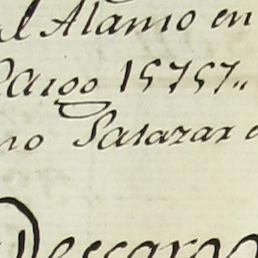 el Alamo en
Cargo 15757..
no Salazar
Descargo